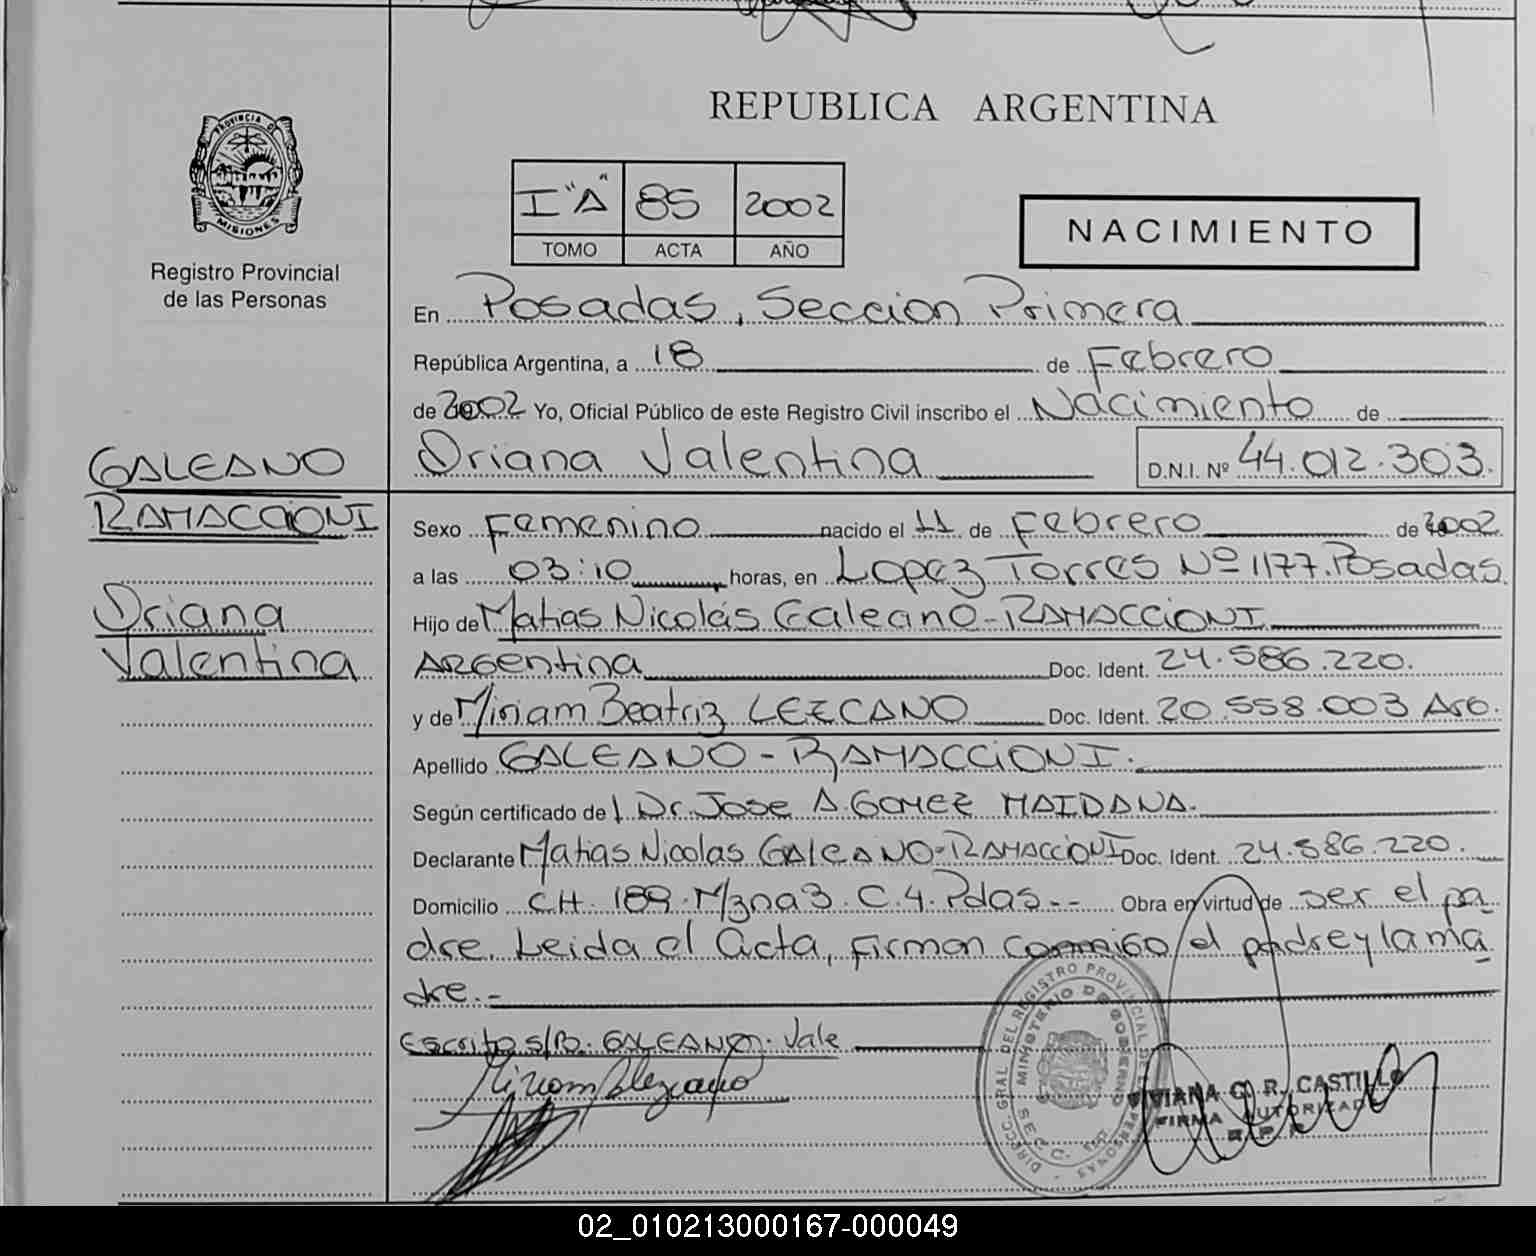 REPUBLICA ARGENTINA
PROVINCIA DE
MISIONES
Registro Provincial
de las Personas
I "A" 85 2002
TOMO ACTA AÑO
NACIMIENTO
En Posadas, Seccion Primera
República Argentina, a 18 de Febrero
de 2002 Yo, Oficial Público de este Registro Civil inscribo el Nacimiento de
Oriana Valentina D.N.I. Nº 44.012.303.
GALEANO
RAMACCIONI
Oriana
Valentina
Sexo Femenino nacido el 11 de Febrero de 2002
a las 03:10 horas, en Lopez Torres Nº 1177. Posadas
Hijo de Matias Nicolás Galeano-RAMACCIONI
ARGentina Doc. Ident. 24.586.220.
y de Miriam Beatriz LEZCANO Doc. Ident. 20.558.003 ARG.
Apellido GALEANO - RAMACCIONI.
Según certificado de Dr. Jose A. GOMEZ MAIDANA.
Declarante Matias Nicolas GALEANO-RAMACCIONI Doc. Ident. 24.586.220.
Domicilio CH. 189. M/zna 3. C. 4. Pdas-- Obra en virtud de ser el pa
dre. Leida el Acta, firman conmigo el padre y la ma
dre.-
Escrito s/R. GALEANO. Vale
Miriam B Lezcano
DIRECC. GRAL DEL REGISTRO PROVINCIAL DE PERSONAS
MINISTERIO DE GOBIERNO
VIVIANA G. R. CASTILLO
FIRMA AUTORIZADA
02_010213000167-000049